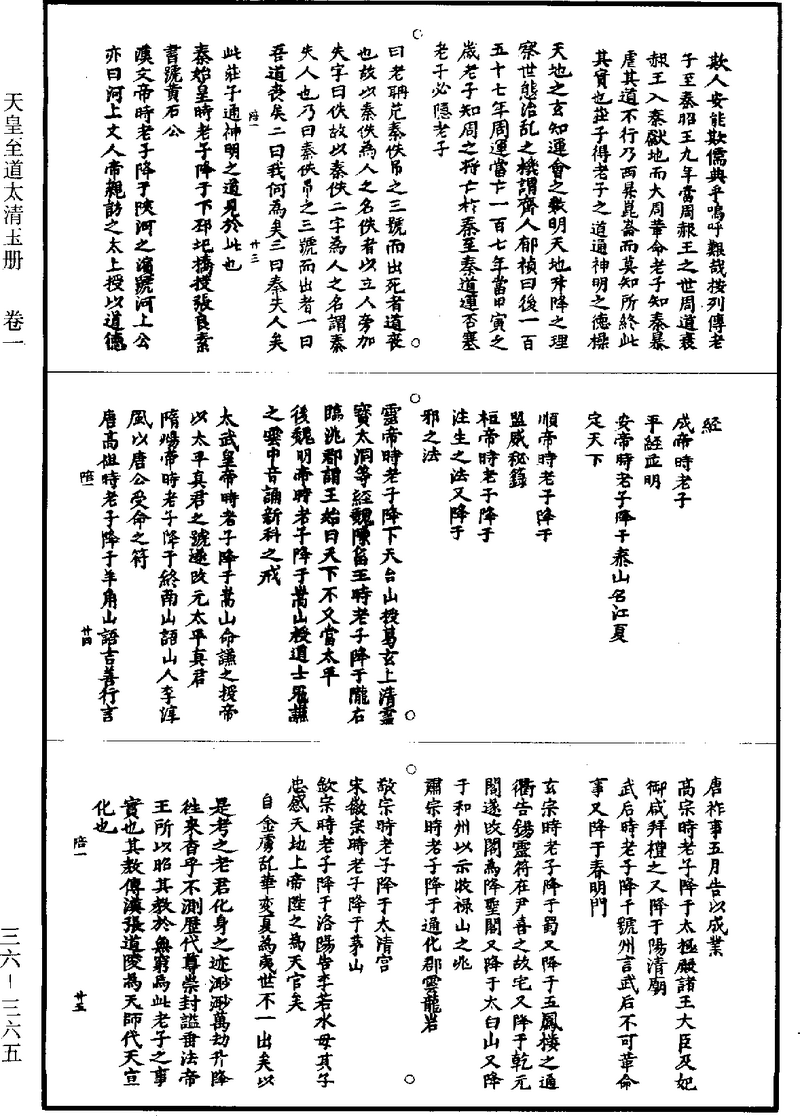 天皇至道太清玉册 卷一
三六—三六五
欺人安能欺儒典乎嗚呼艱哉按列傳老
子至秦昭王九年當周赧王之世周道衰
赧王入秦獻地而大周革命老子知秦暴
虐其道不行乃西昇崑崙而莫知所終此
其實也莊子得老子之道通神明之德操
天地之玄知運會之數明天地升降之理
察世態治亂之機謂齊人郁禎曰後一百
五十七年周運當亡一百七年當甲寅之
歲老子知周之將亡於秦至秦道運否塞
老子必隱老子
曰老聃死秦佚吊之三號而出死者道丧
也故以秦佚為人之名佚者以立人旁加
失字曰佚故以秦佚二字為人之名謂秦
失人也乃曰秦佚吊之三號而出者一曰
吾道丧矣二曰我何為矣三曰奉失人矣
陪一
廿三
此莊子通神明之道見於此也
秦始皇時老子降于下邳圯橋授張良素
書號黄石公
漢文帝時老子降于陝河之濱號河上公
亦曰河上丈人帝親訪之太上授以道德
經
成帝時老子
平經並明
安帝時老子降于泰山名江夏
定天下
順帝時老子降于
盟威秘籙
桓帝時老子降于
注生之法又降于
邪之法
靈帝時老子降下天台山授葛玄上清靈
寳太洞等經魏陳留王時老子降于隴右
臨洮郡謂王始曰天下不又當太平
後魏明帝時老子降于嵩山授道士寇謙
之雲中音誦新科之戒
太武皇帝時老子降于嵩山命謙之授帝
以太平真君之號遂改元太平真君
隋煬帝時老子降于終南山語山人李淳
風以唐公受命之符
唐高祖時老子降于羊角山語吉善行言
陪一
廿四
唐祚事五月告以成業
高宗時老子降于太極殿諸王大臣及妃
御咸拜禮之又降于陽清廟
武后時老子降于虢州言武后不可革命
事又降于春明門
玄宗時老子降于蜀又降于五鳳樓之通
衢告錫靈符在尹喜之故宅又降于乾元
閣遂改閣為降聖閣又降于太白山又降
于和州以示收禄山之兆
肅宗時老子降于通化郡雲龍岩
敬宗時老子降于太清宫
宋徽宗時老子降于茅山
欽宗時老子降于洛陽告李若水母其子
忠感天地上帝陞之為天官矣
自金虜亂華変夏為夷世不一出矣以
是考之老君化身之迹渺渺萬劫升降
徃來杳乎不測歷代尊崇封謚垂法帝
王所以昭其教於無窮焉此老子之事
實也其教傳漢張道陵為天師代天宣
化也
陪一
廿五